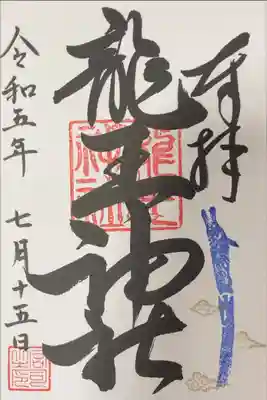 奉拝
龍王神社
令和五年 七月十五日